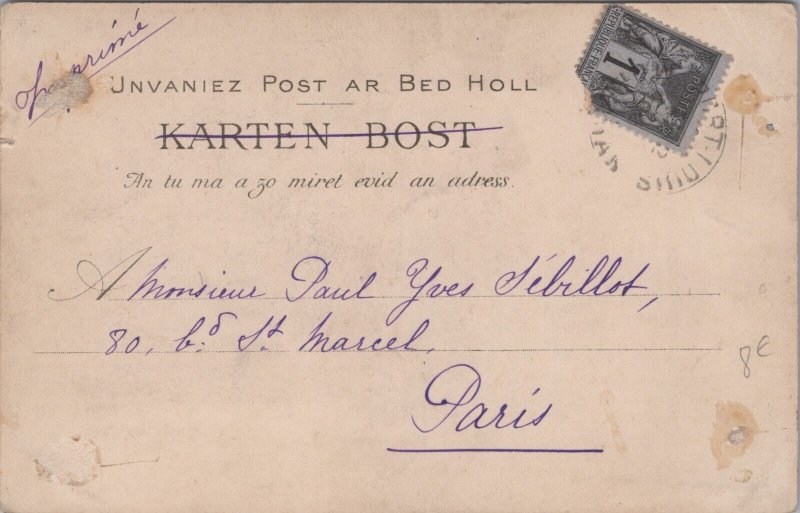 Imprimé
UNVANIEZ POST AR BED HOLL
KARTEN BOST
An tu ma a zo miret evid an adress.
A Monsieur Paul Yves Sébillot,
80, bd. St. Marcel,
Paris
8€
1
POSTES
REPUBLIQUE FRANC
ORT-LOUIS